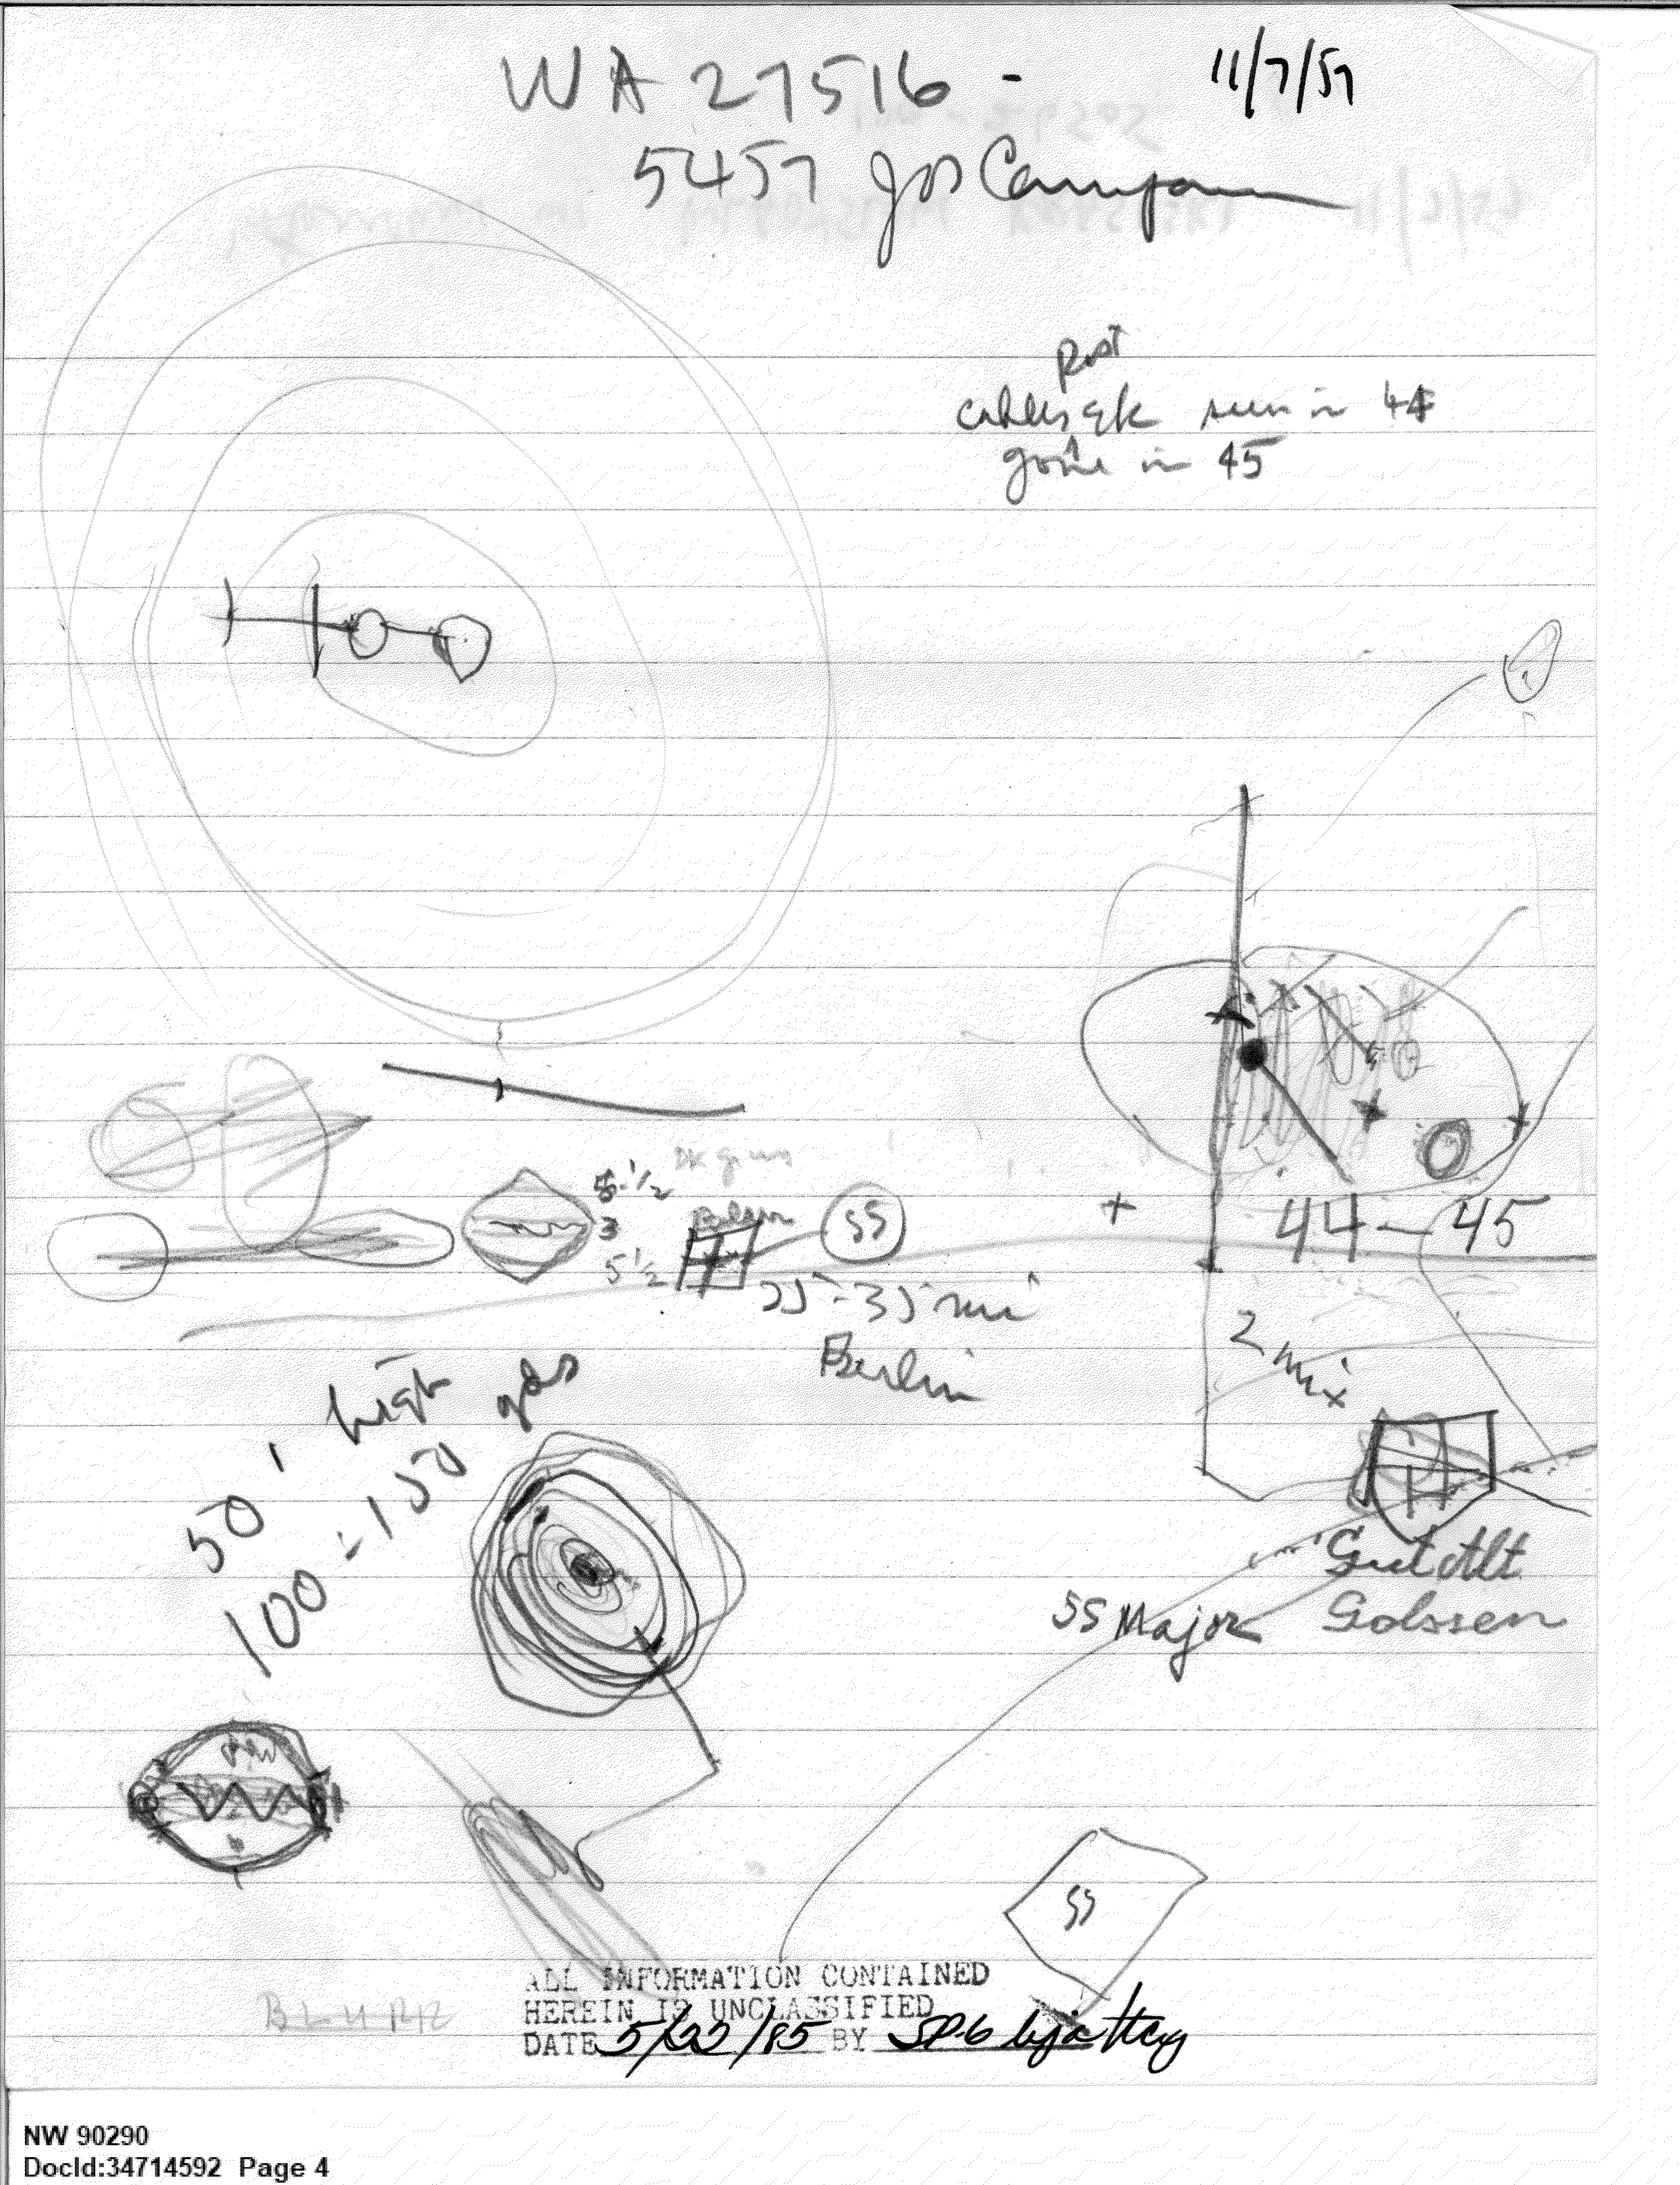 WA 27516 - 11/7/57
5457 Jos Campau
Post
seen in 44
gone in 45
5 1/2
DK green
3
SS
5 1/2
25-35 mi
Berlin
44-45
2 mi x
50' high
100-150 yds
Gut Alt
Golssen
SS Major
SS
ALL INFORMATION CONTAINED
HEREIN IS UNCLASSIFIED
DATE 5/22/85 BY SP-6
NW 90290
DocId:34714592 Page 4